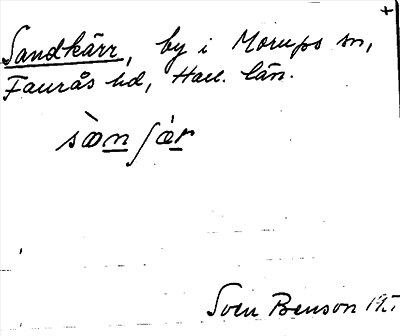 Sandkärr, by i Morups sn,
Faurås hd, Hall. län.
sàn ʃær
Sven Benson 19